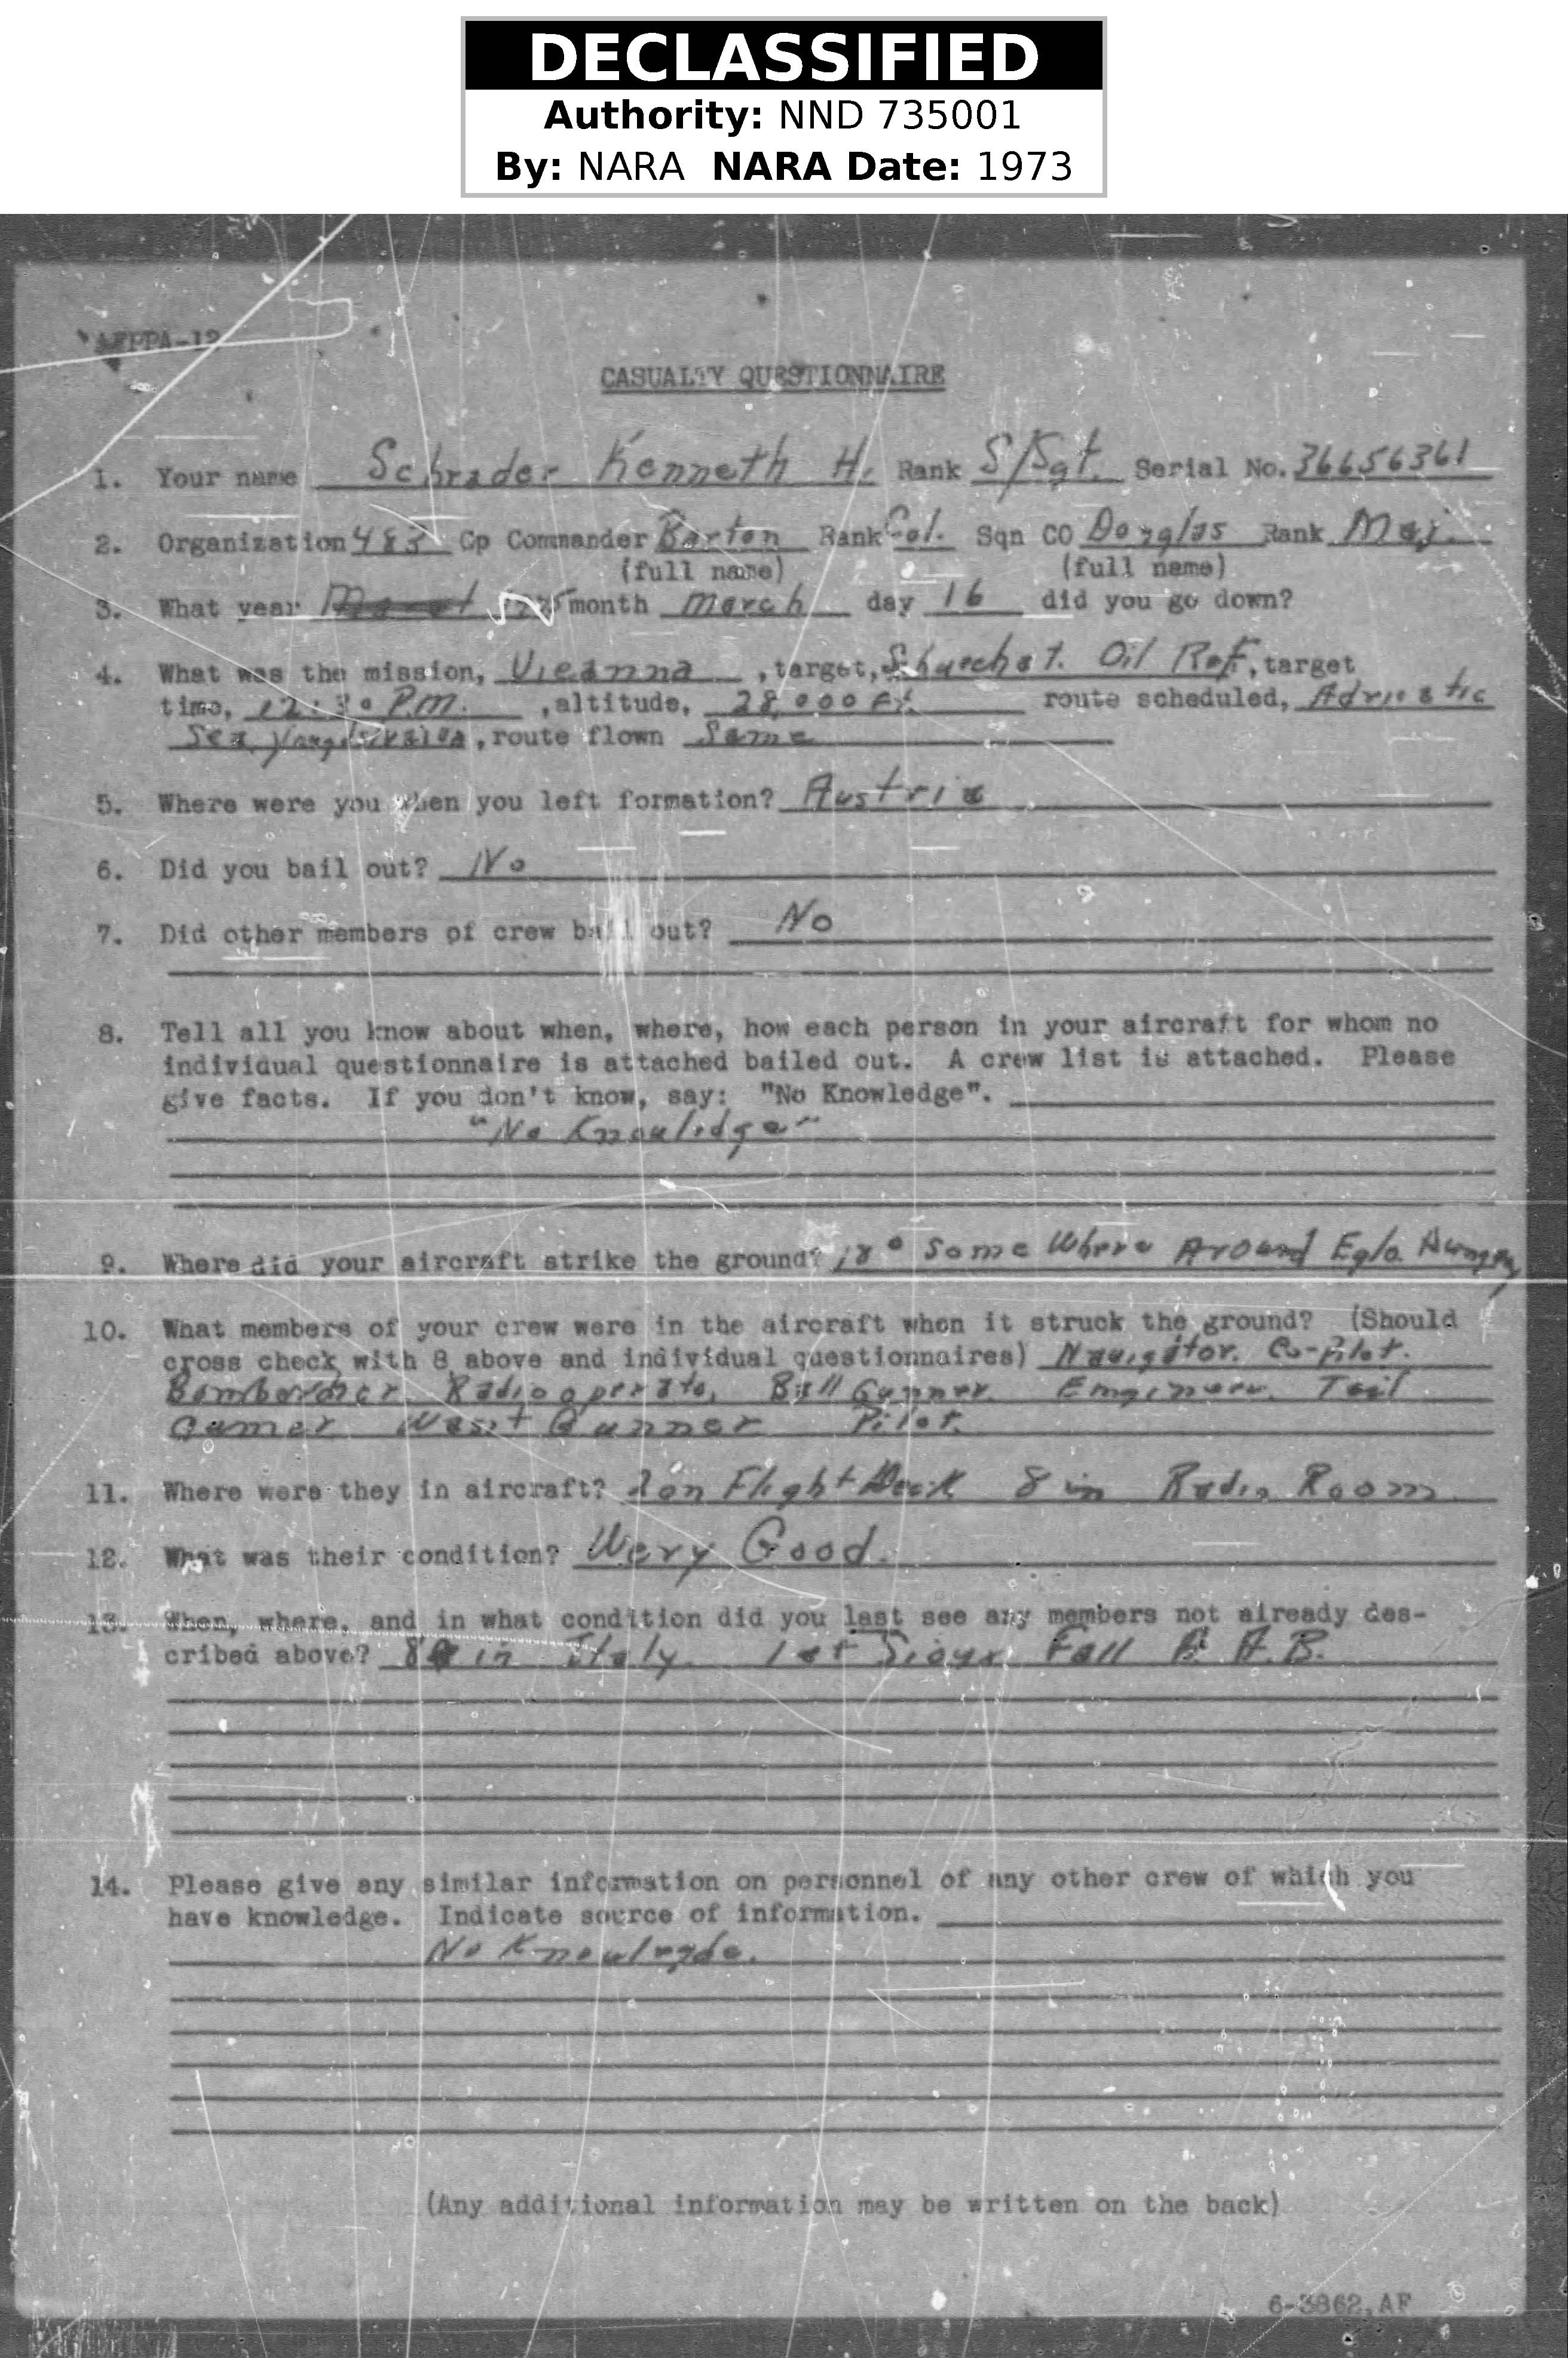 DECLASSIFIED
Authority: NND 735001
By: NARA NARA Date: 1973
AFPPA-12
CASUALTY QUESTIONNAIRE
1. Your name Schrader Kenneth H. Rank S/Sgt. Serial No. 36656361
2. Organization 483 Gp Commander Barton Rank Col. Sqn CO Douglas Rank Maj.
(full name) (full name)
3. What year month March day 16 did you go down?
4. What was the mission, Vieanna, target, Oil Ref, target
time, 12:30 P.M., altitude, 28,000 Ft. route scheduled, Adriatic
Sea, route flown Same
5. Where were you when you left formation? Austria
6. Did you bail out? No
7. Did other members of crew bail out? No
8. Tell all you know about when, where, how each person in your aircraft for whom no
individual questionnaire is attached bailed out. A crew list is attached. Please
give facts. If you don't know, say: "No Knowledge".
"No Knowlidge"
9. Where did your aircraft strike the ground? Some Where Around
10. What members of your crew were in the aircraft when it struck the ground? (Should
cross check with 8 above and individual questionnaires) Navigator. Co-pilot.
Bombardier Radio operator, Ball Gunner. Engineer. Tail
Gunner Waist Gunner Pilot.
11. Where were they in aircraft? 2 on Flight Deck 8 in Radio Room
12. What was their condition? Very Good.
13. When, where, and in what condition did you last see any members not already des-
cribed above? 8 in Italy. 1 at Sioux Fall A. A. B.
14. Please give any similar information on personnel of any other crew of which you
have knowledge. Indicate source of information.
No Knowlegde.
(Any additional information may be written on the back)
6-3862, AF